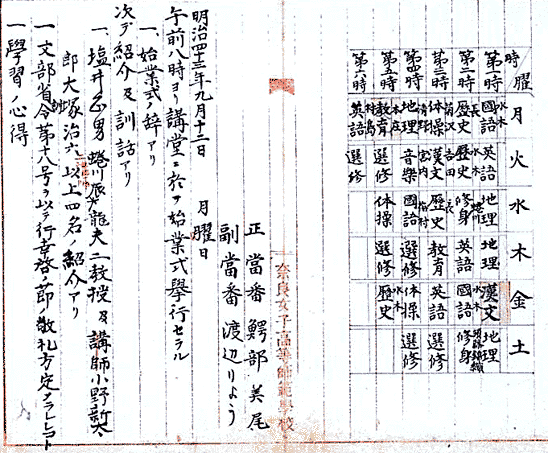 時 曜 月 火 水 木 金 土
第一時 國語 英語 地理 地理 漢文 地理
第二時 歴史 歴史 修身 英語 國語 修身
第三時 体操 漢文 歴史 教育 英語 選修
第四時 地理 音樂 國語 選修 体操 選修
第五時 教育 選修 体操 選修 歴史
第六時 英語 選修
奈良女子高等師範學校
正當番 鰐部美尾
副當番 渡辺りよう
明治四十三年九月十二日 月曜日
午前八時ヨリ講堂ニ於テ始業式舉行セラル
一、始業式ノ辞アリ
次デ紹介及訓話アリ
一、塩井正男 蜷川龍夫二教授及講師小野
郎大塚治六 以上四名ノ紹介アリ
一文部省令第十八号ヲ以テ行幸啓ノ節ノ敬礼方定メラレシコト
一學習ノ心得